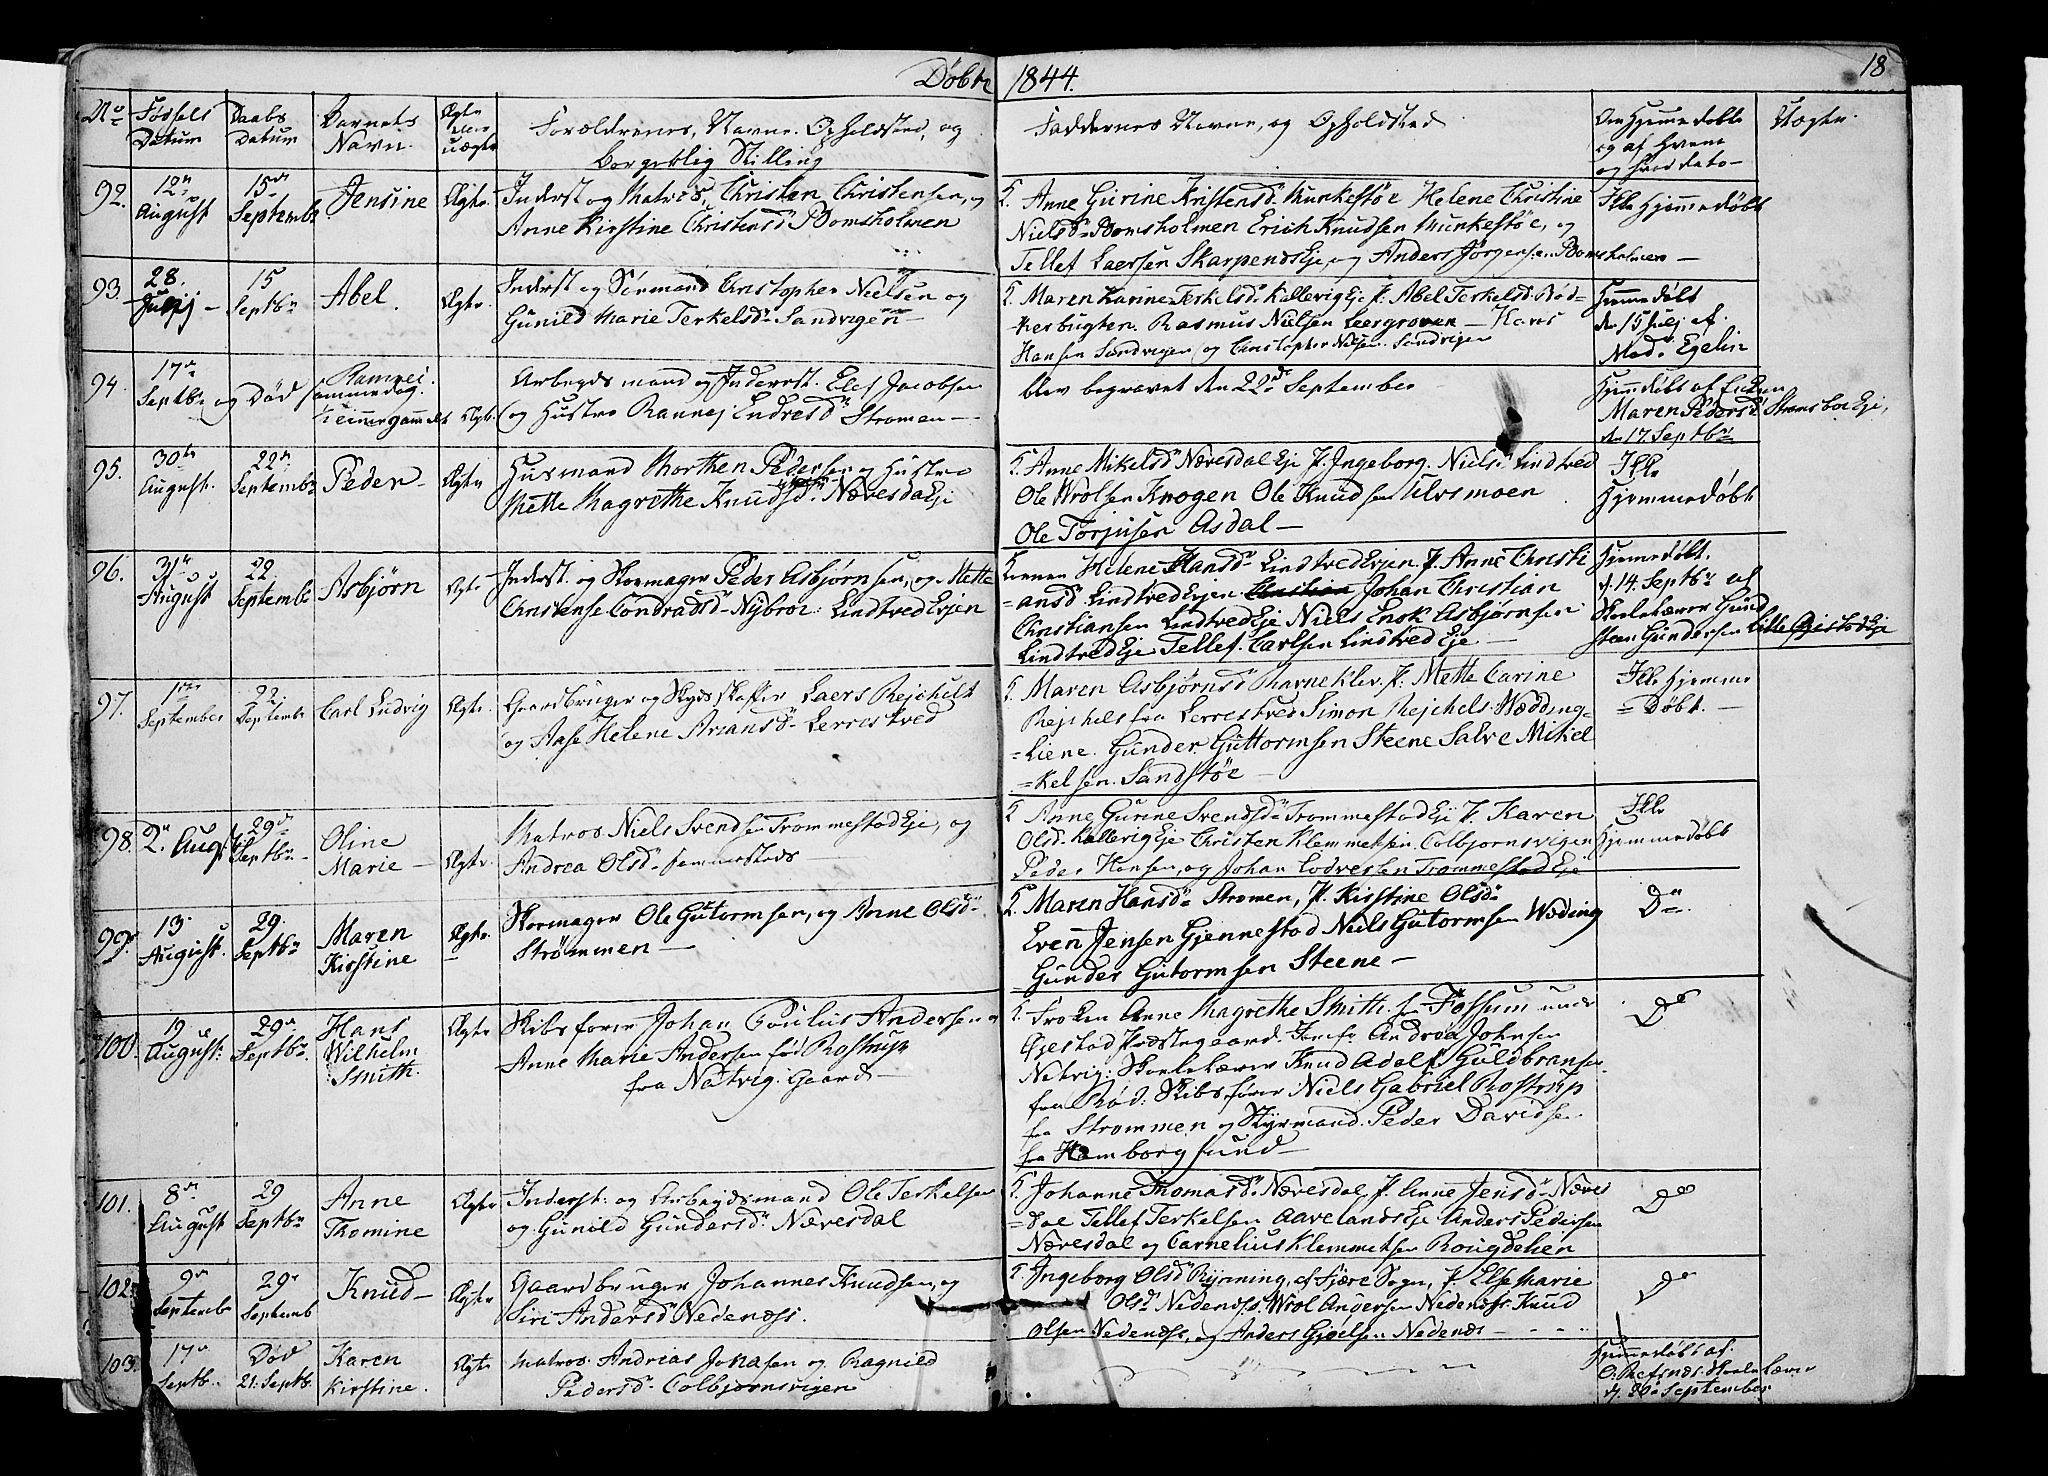 Døbte 1844. 18
No Fødsels Datum Daabs Datum Barnets Navn. Ægte eller uægte Forældrenes, Navne. Opholdsted, og Borgerlig Stilling Faddernes Navne, og Opholdsted Om Hjemmedøbte og af hvem og hvad dato
92. 12te August 15de Septembr Jensine Ægte.
Inderst og Matros, Christen Christensen, og
Anne Kirstine Christensd. Bomsholmen
Anne Gurine Kristensd. Munkestøe Helene Christine
Nielsd. Bomsholmen Erich Knudsen Munkestøe, og
Tellef Laersen Skarpends Eje, og Anders Jørgensen Bomsholmen
Ikke Hjemmedøbt
93. 28. 15 Septbr Abel. Ægte.
Inderst og Sømand Christopher Nielsen og
Gunild Marie Terkelsd. Sandvigen
Maren Karine Terkelsd. Kallevig Eje P. Abel Terkelsd. Rød-
kerbugten. Rasmus Nielsen Leergroven — Hans
Hansen Sandvigen og Christopher Nielsen Sandvigen
Hjemmedøbt
den 15 Julj af.
Mad. Egelin
94. 17de Septbr og Død sammedag. Ramnei. Ægte.
Arbeydsmand og Inderst. Elef Jacobsen
og Hustro Rannej Endresd. Stromen
blev begravet den 22de September
Hjemmedøbt af Enken
Maren Pedersd. Strømsboe Eje,
den 17 Septbr
95. 30te August. 22de Septembr Peder Ægte
Husmand Morthen Pedersen og Hustro
Mette Magrethe Knudsd. Næresdal Eje
Anne Mikelsd. Næresdal Eje P. Ingeborg. Nielsd. Lindtved
Ole Wrolsen Knogen Ole Knudsen Ulvsmoen
Ole Torjusen Asdal —
Ikke
Hjemmedøbt
96. 31te August 22 Septembr Asbjørn Ægte
Inderst. og Skomager Peder Asbjørnsen, og Mette
Christense Condradsd. Nybroe: Lindtved Eyen
Konen Helene Hansd. Lindtved Eyen P. Anne Christi
=ansd. Lindtved Eyen Christian Johan Christian
Christiansen Lindtved Eje Niels Ensk Asbjørnsen
Lindtved Eje Tellef. Carlsen Lindtved Eje
Hjemmedøbt.
d. 14. Septbr af
Skolelærer Gund
steen Gundersen Lille Øjestad Eje
97. 1ste September 22. Septembr Carl Ludvig Ægte.
Gaardbruger og Skydsskaffer Laers Rejchelt
og Aase Helene Ariansd. Lerrestved
Maren Asbjørnsd. Ravneklev. P. Mette Carine
Rejchels fra Lerrestved Simon Rejchels Wedding=
=Liene. Gunder Guttormsen Steene Salve Mikel
=kelsen. Sandstøe
Ikke Hjemme
=Døbt.
98. 2de August 29de Septbr Oline Marie Ægte.
Matros Niels Svendsen Trommestad Eje, og
Andrea Olsd. sammesteds
Anne Gurine Svendsd. Trommestad Eje P. Karen
Olsd. Kallevig Eje Christen Klemmetsen. Colbjornsvigen
Peder Hansen, og Johan Lodvesen Trommestad Eje
Ikke
Hjemmedøbt
99. 13. August. 29. Septbr Maren Kirstine Ægte.
Skomager Ole Gutormsen, og Anne Olsd.
Strømmen
Maren Hansd. Stromen, P. Kirstine Olsd.
Even Jensen Gjennestad Niels Gutormsen Weding
Gunder Gutormsen Steene
Do.
100. 19de August: 29de Septbr. Hans Wilhelm Smith. Ægte
Skibsfører Johan Poulus Andersen og
Anne Marie Andersen født Rostrup
fra Natvig. Gaard
Frøken Anne Magrethe Smith. fra Fossum unde
Øjestad Præstegaard. Jomfr Andrea Johnsen
Natvig: Skolelærer Knud Adolf Guldbransen.
fra Rød: Skibsfører Niels Gabriel Rostrup
fra Strommen og Styrmand. Peder Davidsen.
fra Hamborgsund
Do
101. 8de August 29 Septbr Anne Thomine Ægte
Inderst: og Arbeydsmand Ole Terkelsen
og Gunild Gundersd. Næresdal
Johanne Thomasd. Næresdal P. Anne Jensd. Næres
=dal Tellef Terkelsen Aavelands Eje Anders Pedersen
Næresdal og Carnelius Klemmetsen Rougdehen
Do
102. 9de Septembr 29de Septemb Knud Ægte
Gaardbruger Johannes Knudsen, og
Siri Andersd. Nedenæss.
Ingeborg Olsd. Rynning, af Fjære Sogn, P. Else Marie
Olsd. Nedenæss. Wrol Angersen Nedenæss. Knud
Olsen Nedenæss, og Anders Gjoelsen Nedenæs
Do
103. 17de Septb. Død 21. Septb. Karen Kirstine. Ægte
Matros. Andrias Jonasen og Ragnild
Pedersd. Colbjørnsvigen
Hjemmedøbt af.
O. Refsnes Skolelærer
d. 20. September